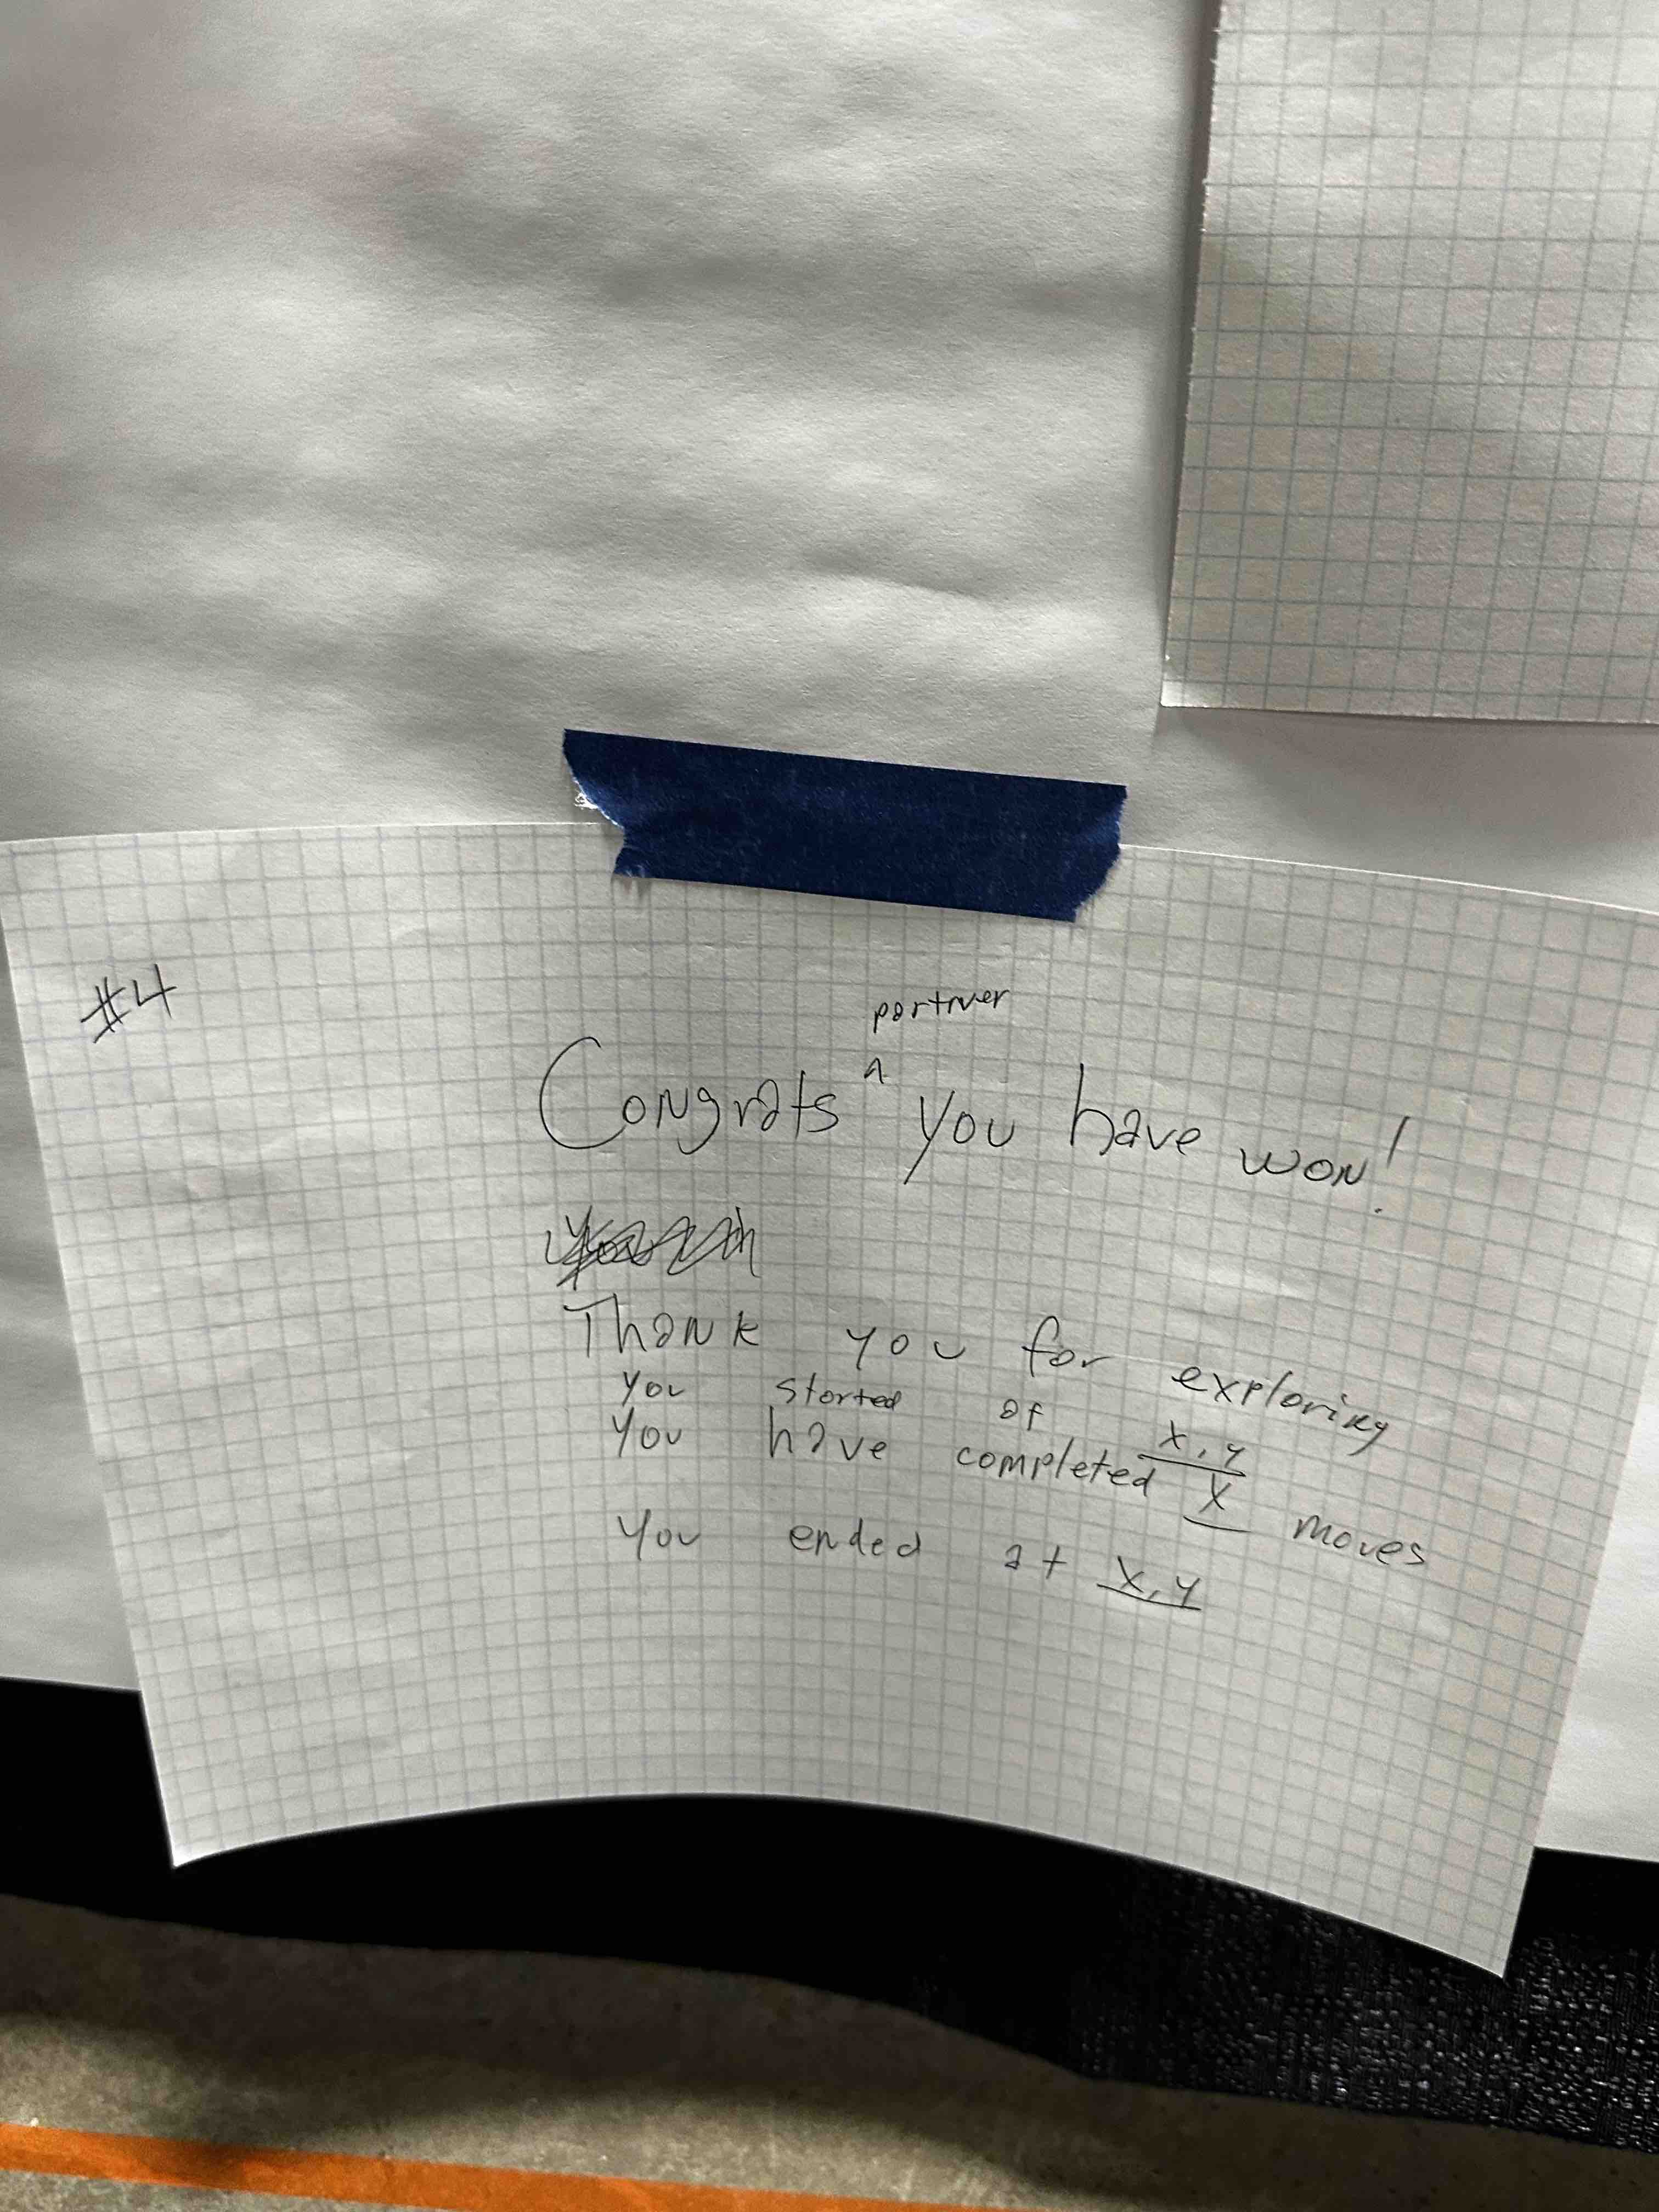 #4
partner
Congrats ^ you have won!
Thank you for exploring
you started at x, y
you have completed x moves
you ended at x, y